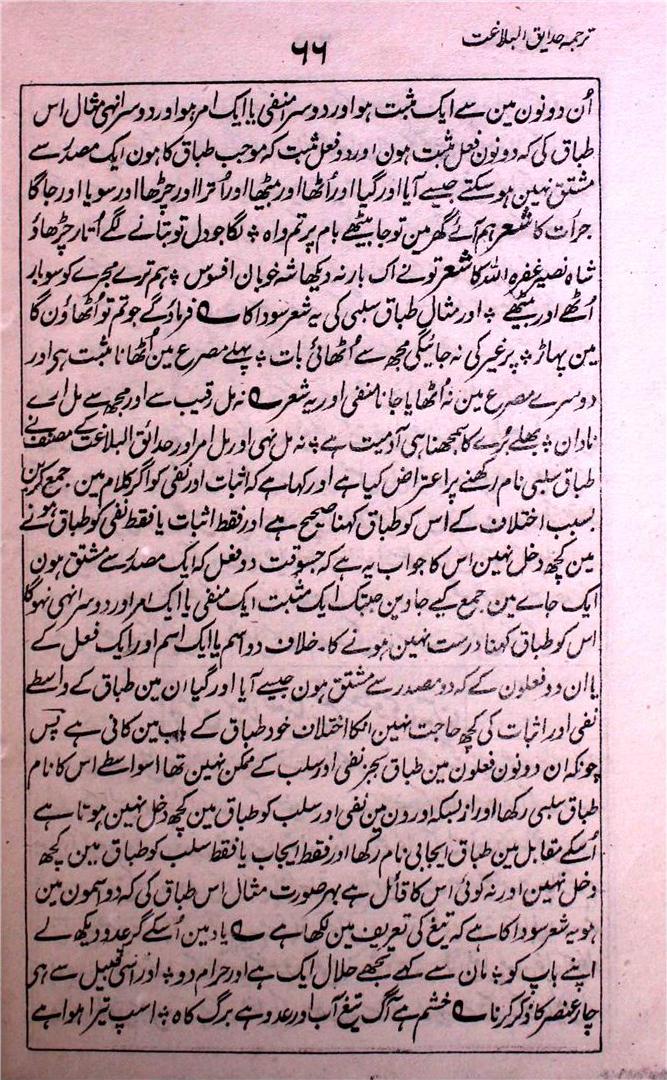 ترجمہ حدایق البلاغت
۶۶
اُن دونون مین سے ایک مثبت ہو اور دوسرا منفی یا ایک امر ہو اور دوسرا نہی مثال اس
طباق کی کہ دونون فعل مثبت ہون اور دو فعل مثبت کہ موجب طباق کا ہون ایک مصدر سے
مشتق نہین ہو سکتے جیسے آیا اور گیا اور اُٹھا اور بیٹھا اور اُترا اور چڑھا اور سویا اور جاگا
جرأت کا شعر ہم آئے گھر مین تو جا بیٹھے بام پر تم واہ ٭ لگا جو دل تو بتانے لگے اُتار چڑھاؤ
شاہ نصیر غفرہ اللہ کا شعر تونے اک بار نہ دیکھا شہ خوبان افسوس ٭ ہم ترے مجرے کو سو بار
اُٹھے اور بیٹھے ٭ اور مثال طباق سلبی کی یہ شعر سودا کا ؎ فرماؤگے جو تم تو اُٹھاؤن گا
مین پہاڑ ٭ پر غیر کی نہ جائیگی مجھ سے اُٹھائی بات ٭ پہلے مصرع مین اُٹھانا مثبت ہی اور
دوسرے مصرع مین نہ اُٹھایا جانا منفی اور یہ شعر ؎ نہ مل رقیب سے اور مجھ سے مل ارے
نادان ٭ بھلے بُرے کا سمجھنا ہی آدمیت ہے ٭ نہ مل نہی اور مل امر اور حدائق البلاغت کے مصنف نے
طباق سلبی نام رکھنے پر اعتراض کیا ہے اور کہا ہے کہ اثبات اور نفی کو اگر کلام مین جمع کرین
بسبب اختلاف کے اس کو طباق کہنا صحیح ہے اور فقط اثبات یا فقط نفی کو طباق ہونے
مین کچھ دخل نہین اس کا جواب یہ ہے کہ جسوقت دو فعل کہ ایک مصدر سے مشتق ہون
ایک جاے مین جمع کیے جاوین جبتک ایک مثبت ایک منفی یا ایک امر اور دوسرا نہی نہوگا
اس کو طباق کہنا درست نہین ہونے کا۔ خلاف دو اسم یا ایک اسم اور ایک فعل کے
یا ان دو فعلون کے کہ دو مصدر سے مشتق ہون جیسے آیا اور گیا ان مین طباق کے واسطے
نفی اور اثبات کی کچھ حاجت نہین انکا اختلاف خود طباق کے باب مین کافی ہے پس
چونکہ ان دونون فعلون مین طباق بجز نفی اور سلب کے ممکن نہین تھا اسواسطے اس کا نام
طباق سلبی رکھا اور از بسکہ اورون مین نفی اور سلب کو طباق مین کچھ دخل نہین ہوتا ہے
اُسکے مقابل مین طباق ایجابی نام رکھا اور فقط ایجاب یا فقط سلب کو طباق مین کچھ
دخل نہین اور نہ کوئی اس کا قائل ہے بہر صورت مثال اس طباق کی کہ دو اسمون مین
ہو یہ شعر سودا کا ہے کہ تیغ کی تعریف مین لکھا ہے ؎ یاد مین اُسکے گر عدو دیکھ لے
اپنے باپ کو ٭ مان سے کہے تجھے حلال ایک ہے اور حرام دو ٭ اور اسی قبیل سے ہی
چار عنصر کا ذکر کرنا ؎ خشم ہے آگ تیغ آب اور عدو ہے برگ کاہ ٭ اسپ تیرا ہوا ہے